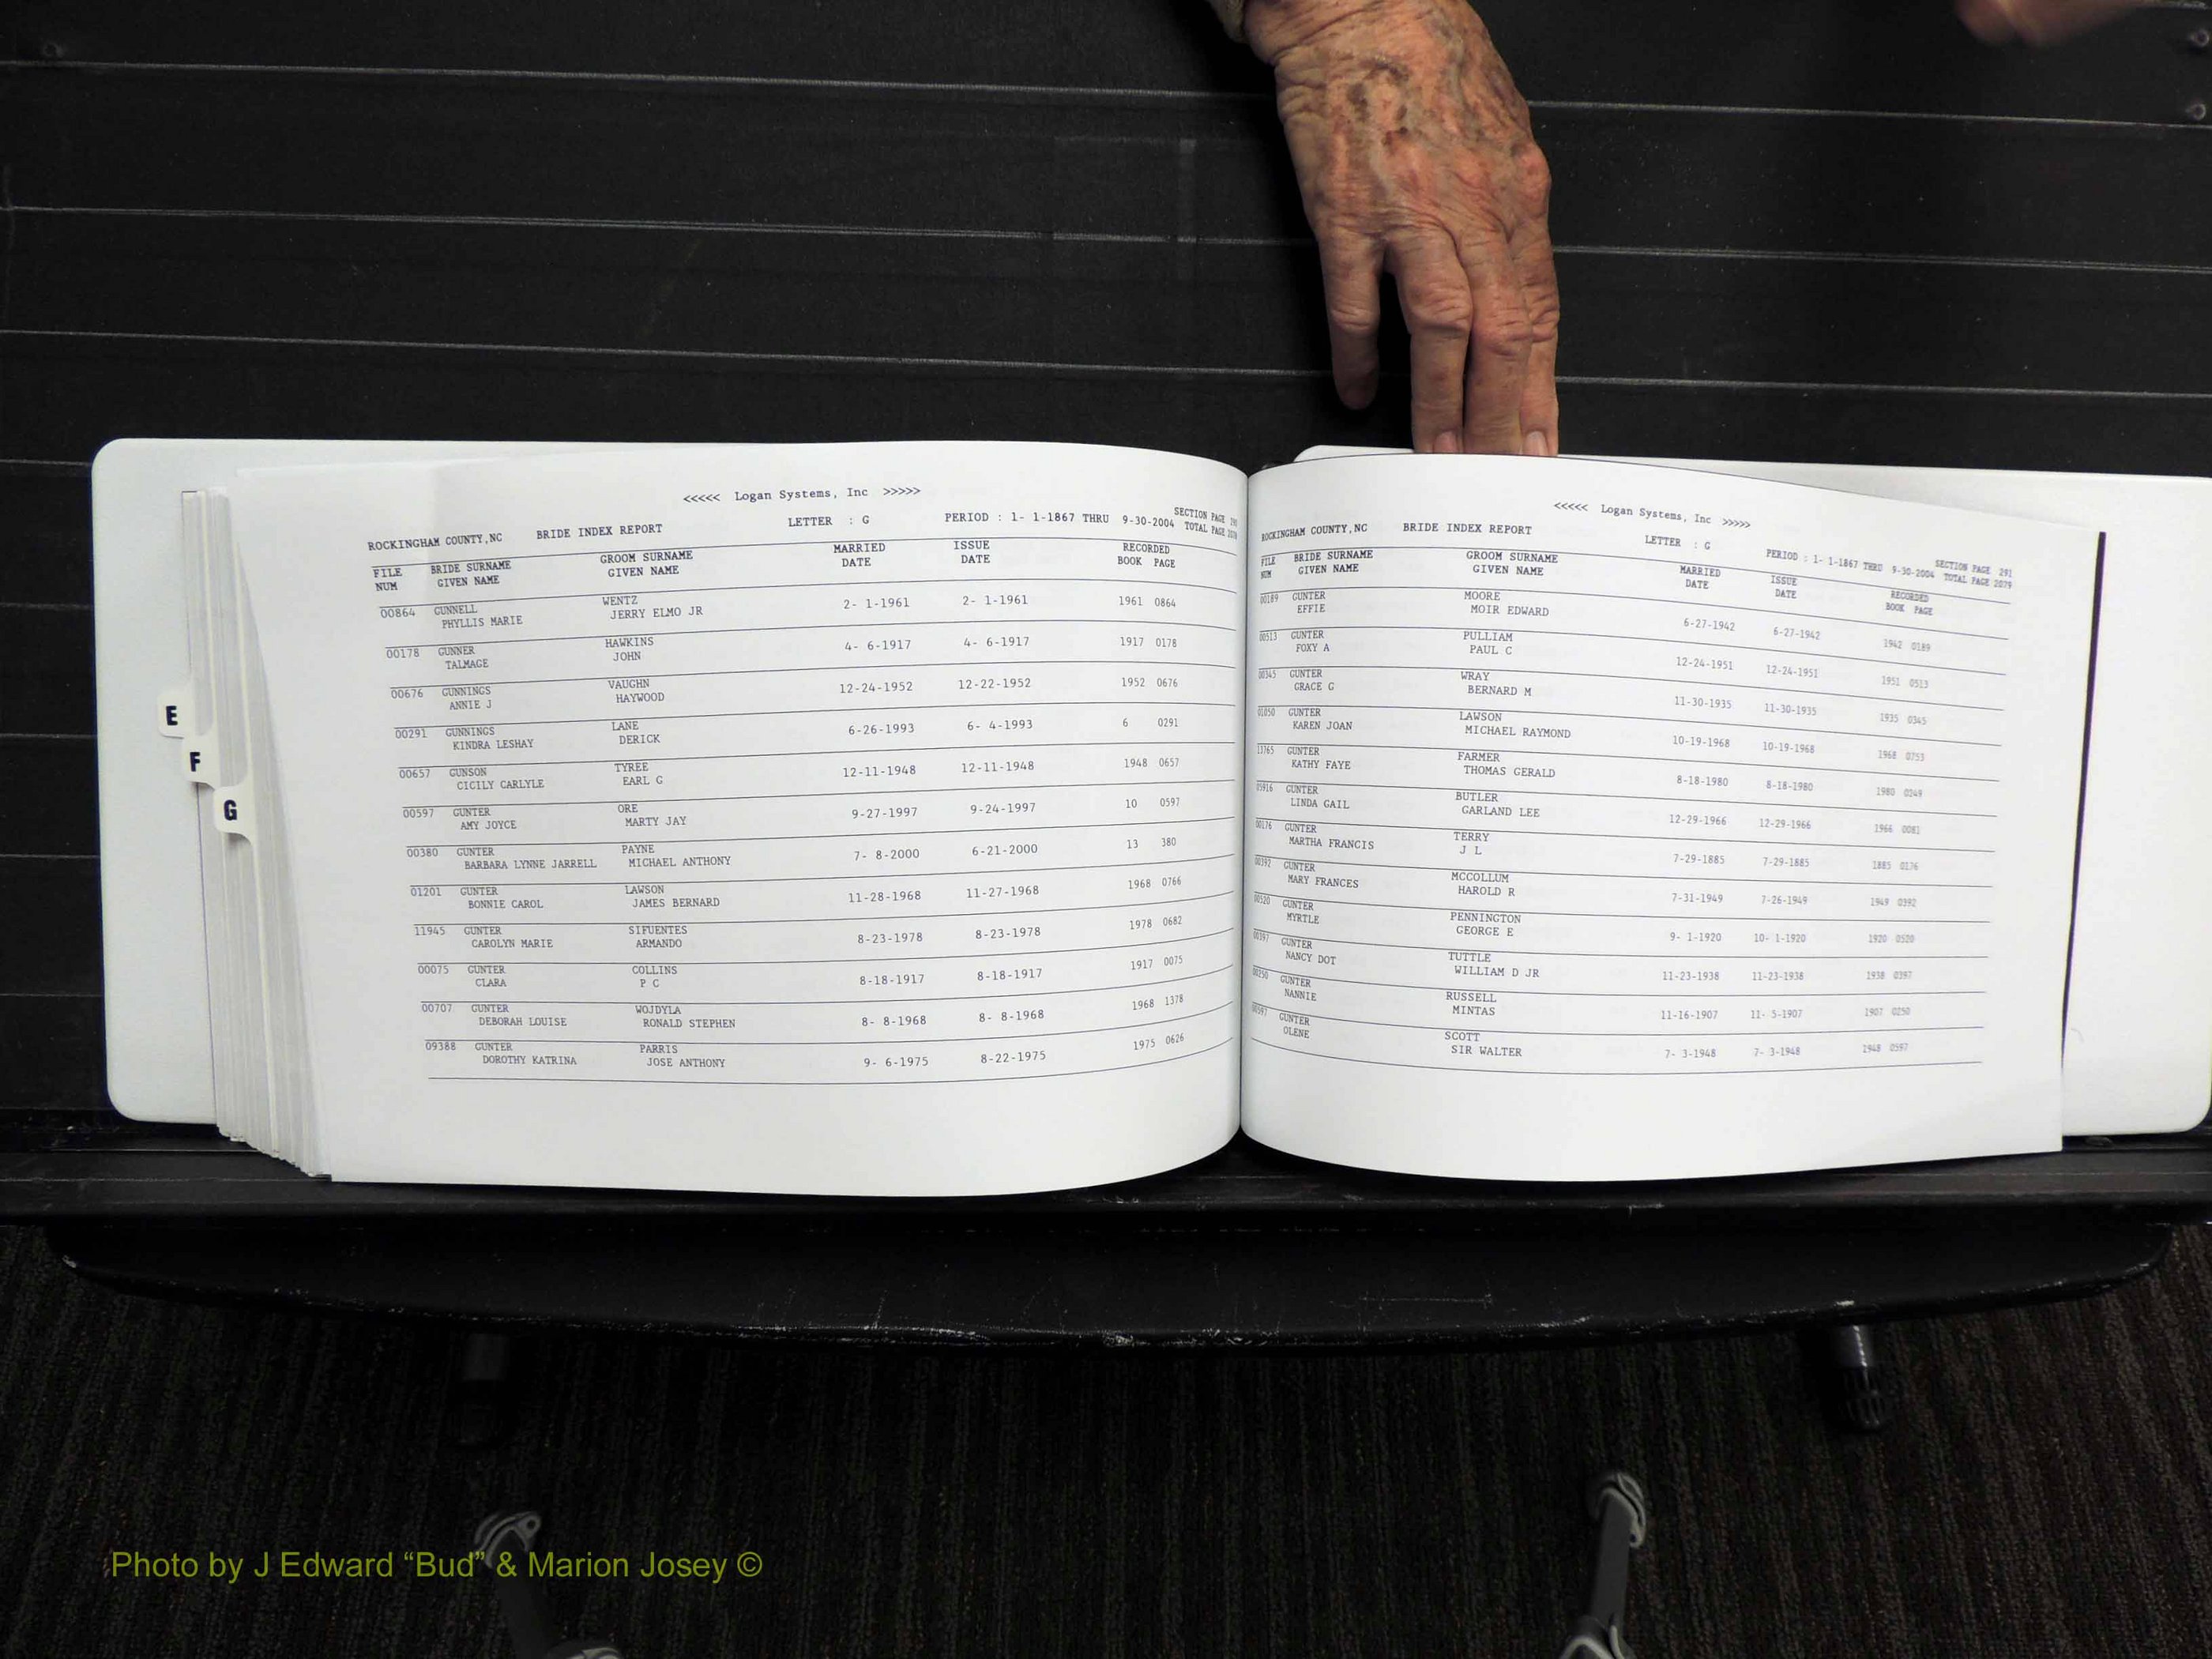 E
F
G
<<<<< Logan Systems, Inc >>>>>
ROCKINGHAM COUNTY,NC BRIDE INDEX REPORT LETTER : G PERIOD : 1- 1-1867 THRU 9-30-2004 SECTION PAGE
TOTAL PAGE
FILE BRIDE SURNAME GROOM SURNAME MARRIED ISSUE RECORDED
NUM GIVEN NAME GIVEN NAME DATE DATE BOOK PAGE
00864 GUNNELL WENTZ 2- 1-1961 2- 1-1961 1961 0864
PHYLLIS MARIE JERRY ELMO JR
00178 GUNNER HAWKINS 4- 6-1917 4- 6-1917 1917 0178
TALMAGE JOHN
00676 GUNNINGS VAUGHN 12-24-1952 12-22-1952 1952 0676
ANNIE J HAYWOOD
00291 GUNNINGS LANE 6-26-1993 6- 4-1993 6 0291
KINDRA LESHAY DERICK
00657 GUNSON TYREE 12-11-1948 12-11-1948 1948 0657
CICILY CARLYLE EARL G
00597 GUNTER ORE 9-27-1997 9-24-1997 10 0597
AMY JOYCE MARTY JAY
00380 GUNTER PAYNE 7- 8-2000 6-21-2000 13 380
BARBARA LYNNE JARRELL MICHAEL ANTHONY
01201 GUNTER LAWSON 11-28-1968 11-27-1968 1968 0766
BONNIE CAROL JAMES BERNARD
11945 GUNTER SIFUENTES 8-23-1978 8-23-1978 1978 0682
CAROLYN MARIE ARMANDO
00075 GUNTER COLLINS 8-18-1917 8-18-1917 1917 0075
CLARA P C
00707 GUNTER WOJDYLA 8- 8-1968 8- 8-1968 1968 1378
DEBORAH LOUISE RONALD STEPHEN
09388 GUNTER PARRIS 9- 6-1975 8-22-1975 1975 0626
DOROTHY KATRINA JOSE ANTHONY
<<<<< Logan Systems, Inc >>>>>
ROCKINGHAM COUNTY,NC BRIDE INDEX REPORT LETTER : G PERIOD : 1- 1-1867 THRU 9-30-2004 SECTION PAGE 291
TOTAL PAGE 2079
FILE BRIDE SURNAME GROOM SURNAME MARRIED ISSUE RECORDED
NUM GIVEN NAME GIVEN NAME DATE DATE BOOK PAGE
00189 GUNTER MOORE 6-27-1942 6-27-1942 1942 0189
EFFIE MOIR EDWARD
00513 GUNTER PULLIAM 12-24-1951 12-24-1951 1951 0513
FOXY A PAUL C
00345 GUNTER WRAY 11-30-1935 11-30-1935 1935 0345
GRACE G BERNARD M
01050 GUNTER LAWSON 10-19-1968 10-19-1968 1968 0753
KAREN JOAN MICHAEL RAYMOND
13765 GUNTER FARMER 8-18-1980 8-18-1980 1980 0349
KATHY FAYE THOMAS GERALD
05916 GUNTER BUTLER 12-29-1966 12-29-1966 1966 0081
LINDA GAIL GARLAND LEE
00176 GUNTER TERRY 7-29-1885 7-29-1885 1885 0176
MARTHA FRANCIS J L
00392 GUNTER MCCOLLUM 7-31-1949 7-26-1949 1949 0392
MARY FRANCES HAROLD R
00520 GUNTER PENNINGTON 9- 1-1920 10- 1-1920 1920 0520
MYRTLE GEORGE E
00397 GUNTER TUTTLE 11-23-1938 11-23-1938 1938 0397
NANCY DOT WILLIAM D JR
00250 GUNTER RUSSELL 11-16-1907 11- 5-1907 1907 0250
NANNIE MINTAS
00597 GUNTER SCOTT 7- 3-1948 7- 3-1948 1948 0597
OLENE SIR WALTER
Photo by J Edward “Bud” & Marion Josey ©